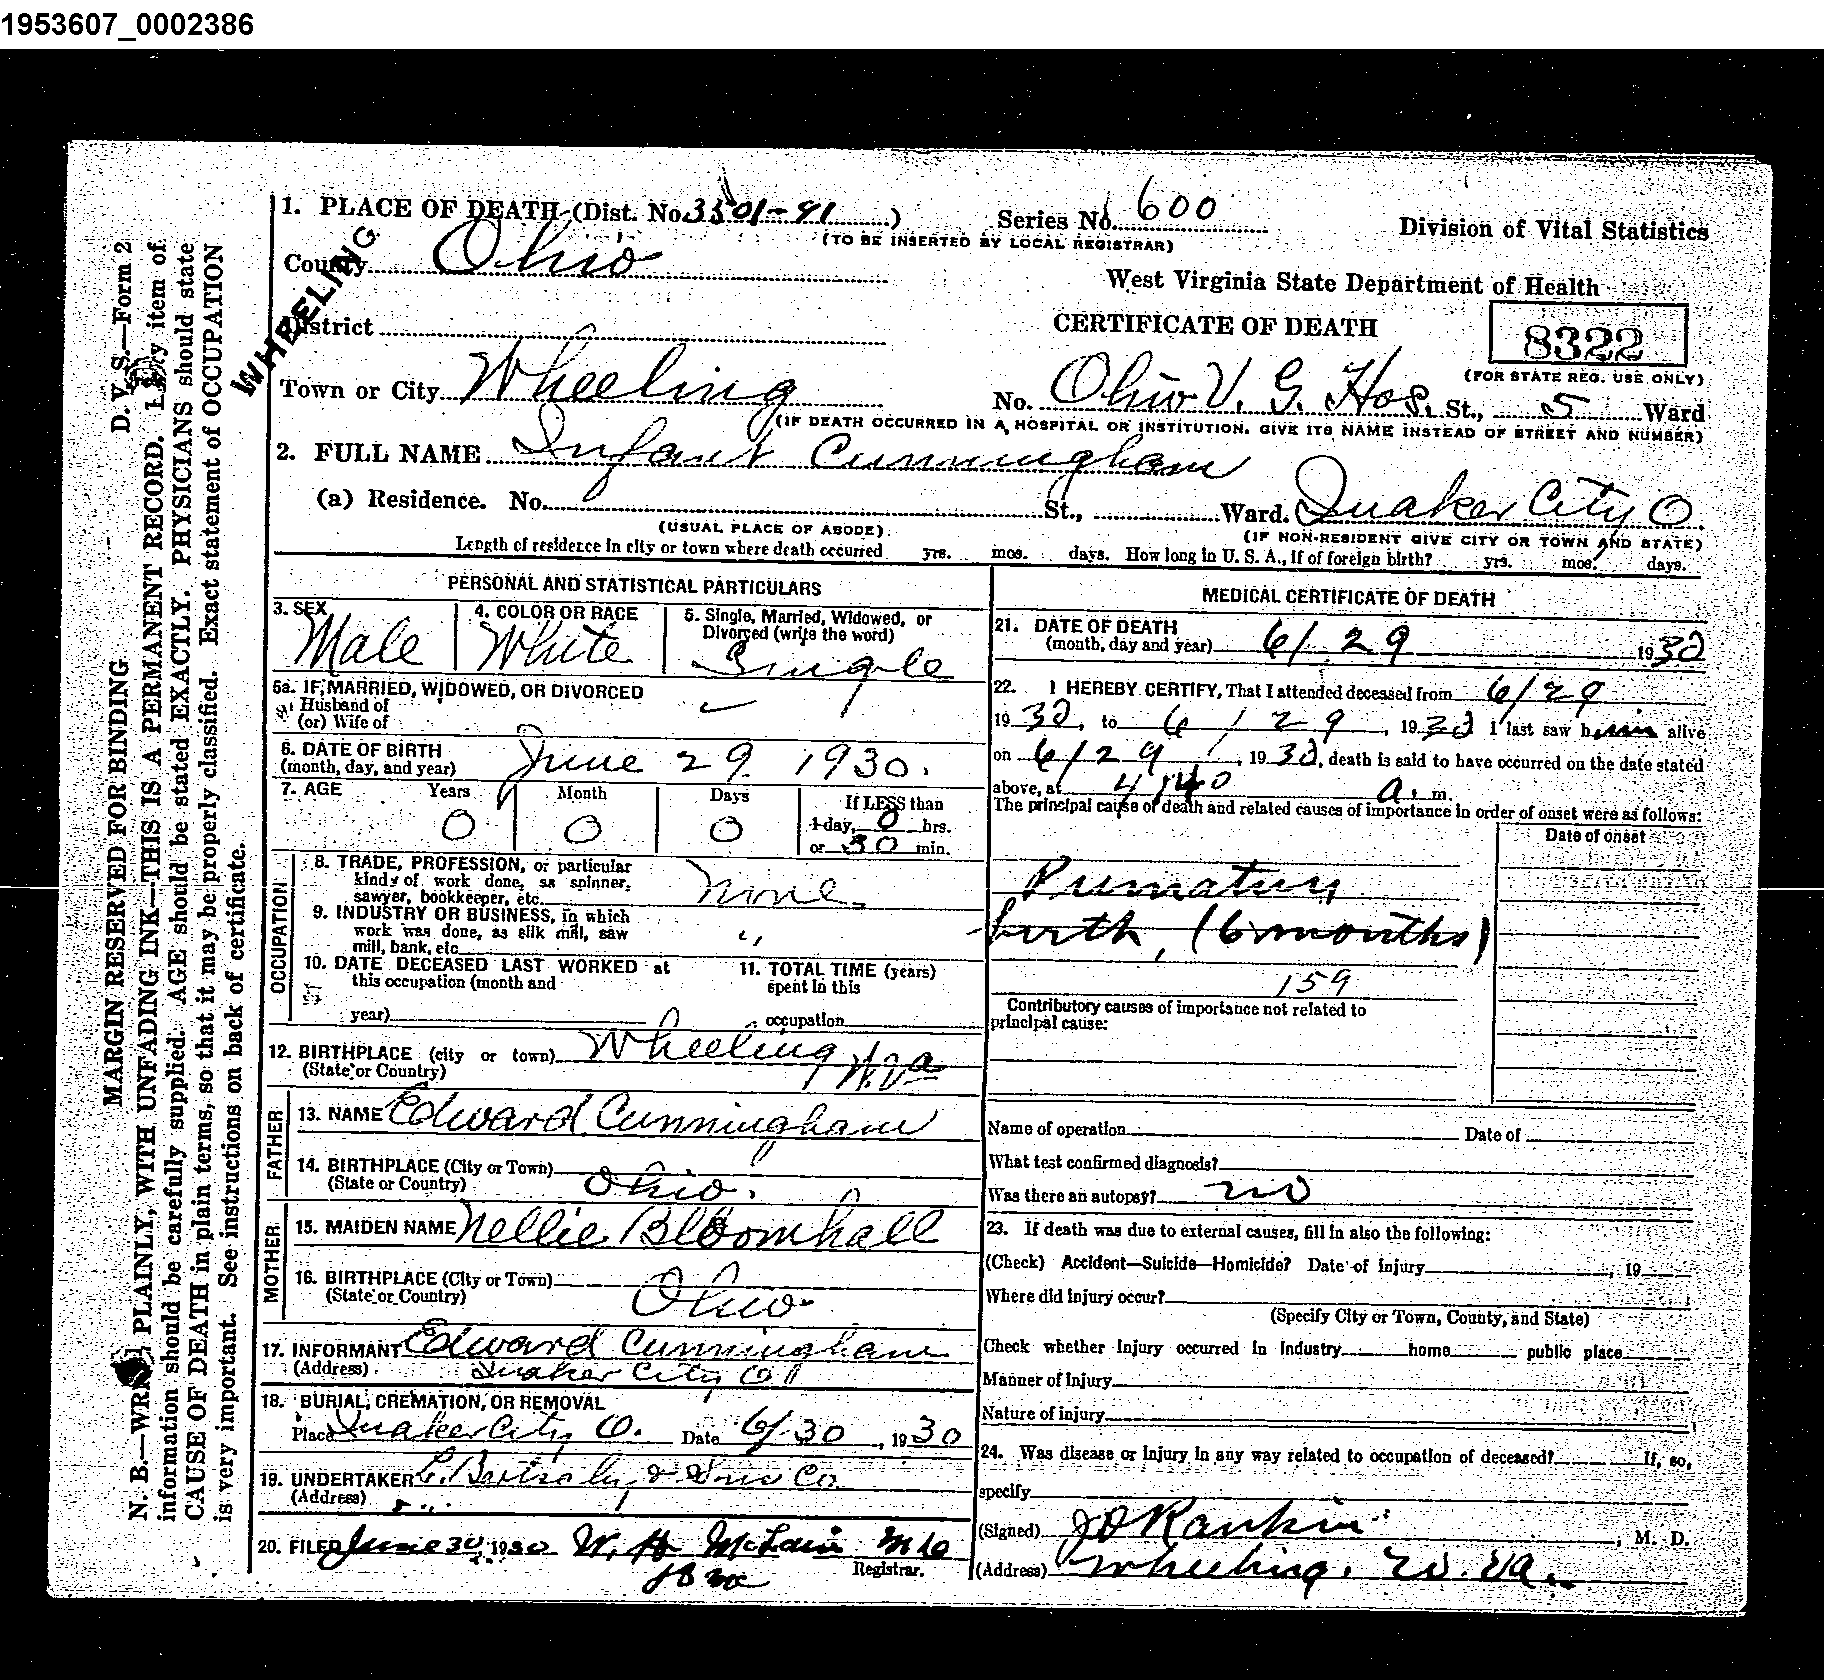 1953607_0002386
1. PLACE OF DEATH (Dist. No. 3501-91)
Series No. 600
(TO BE INSERTED BY LOCAL REGISTRAR)
Division of Vital Statistics
County Ohio
WHEELING
West Virginia State Department of Health
District
CERTIFICATE OF DEATH
8322
(FOR STATE REG. USE ONLY)
Town or City Wheeling
No. Ohio V. G. Hos. St., 5 Ward
(IF DEATH OCCURRED IN A HOSPITAL OR INSTITUTION, GIVE ITS NAME INSTEAD OF STREET AND NUMBER)
2. FULL NAME Infant Cunningham
(a) Residence. No. St., Ward. Quaker City O
(USUAL PLACE OF ABODE)
(IF NON-RESIDENT GIVE CITY OR TOWN AND STATE)
Length of residence in city or town where death occurred yrs. mos. days. How long in U. S. A., if of foreign birth? yrs. mos. days.
PERSONAL AND STATISTICAL PARTICULARS
3. SEX Male
4. COLOR OR RACE White
5. Single, Married, Widowed, or Divorced (write the word) Single
5a. IF MARRIED, WIDOWED, OR DIVORCED
Husband of
(or) Wife of
6. DATE OF BIRTH
(month, day, and year) June 29 1930.
7. AGE Years Month Days If LESS than
0 0 0 1 day, 0 hrs.
or 30 min.
OCCUPATION
8. TRADE, PROFESSION, or particular
kind of work done, as spinner,
sawyer, bookkeeper, etc. None
9. INDUSTRY OR BUSINESS, in which
work was done, as silk mill, saw
mill, bank, etc. "
10. DATE DECEASED LAST WORKED at
this occupation (month and
year)
11. TOTAL TIME (years)
spent in this
occupation
12. BIRTHPLACE (city or town) Wheeling
(State or Country) W. Va
FATHER
13. NAME Edward Cunningham
14. BIRTHPLACE (City or Town)
(State or Country) Ohio.
MOTHER
15. MAIDEN NAME Nellie Bloomhall
16. BIRTHPLACE (City or Town)
(State or Country) Ohio
17. INFORMANT Edward Cunningham
(Address) Quaker City O
18. BURIAL, CREMATION, OR REMOVAL
Place Quaker City O. Date 6/30, 1930
19. UNDERTAKER Co
(Address)
20. FILED June 30, 1930 W. H. McLain M D
Registrar.
MEDICAL CERTIFICATE OF DEATH
21. DATE OF DEATH
(month, day and year) 6/29 1930
22. I HEREBY CERTIFY, That I attended deceased from 6/29
1930, to 6/29, 1930 I last saw him alive
on 6/29, 1930, death is said to have occurred on the date stated
above, at 4:40 a. m.
The principal cause of death and related causes of importance in order of onset were as follows:
Date of onset
Prematury
birth, (6 months)
159
Contributory causes of importance not related to
principal cause:
Name of operation Date of
What test confirmed diagnosis?
Was there an autopsy? no
23. If death was due to external causes, fill in also the following:
(Check) Accident—Suicide—Homicide? Date of injury , 19
Where did injury occur?
(Specify City or Town, County, and State)
Check whether injury occurred in industry home public place
Manner of injury
Nature of injury
24. Was disease or injury in any way related to occupation of deceased? If, so,
specify
(Signed) J O Rankin, M. D.
(Address) Wheeling, W. Va.
D. V. S.—Form 2
MARGIN RESERVED FOR BINDING
N. B.—WRITE PLAINLY, WITH UNFADING INK—THIS IS A PERMANENT RECORD. Every item of
information should be carefully supplied. AGE should be stated EXACTLY. PHYSICIANS should state
CAUSE OF DEATH in plain terms, so that it may be properly classified. Exact statement of OCCUPATION
is very important. See instructions on back of certificate.